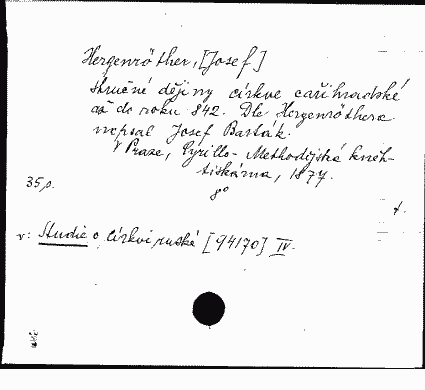 Hergenröther, [Josef]
Stručné dějiny církve cařihradské
až do roku 842. Dle Hergenröthera
napsal Josef Barták.
V Praze, Cyrillo-Methodějská kněh-
tiskárna, 1877.
35 p.
8°
v: Studie o církvi ruské [94170] IV.